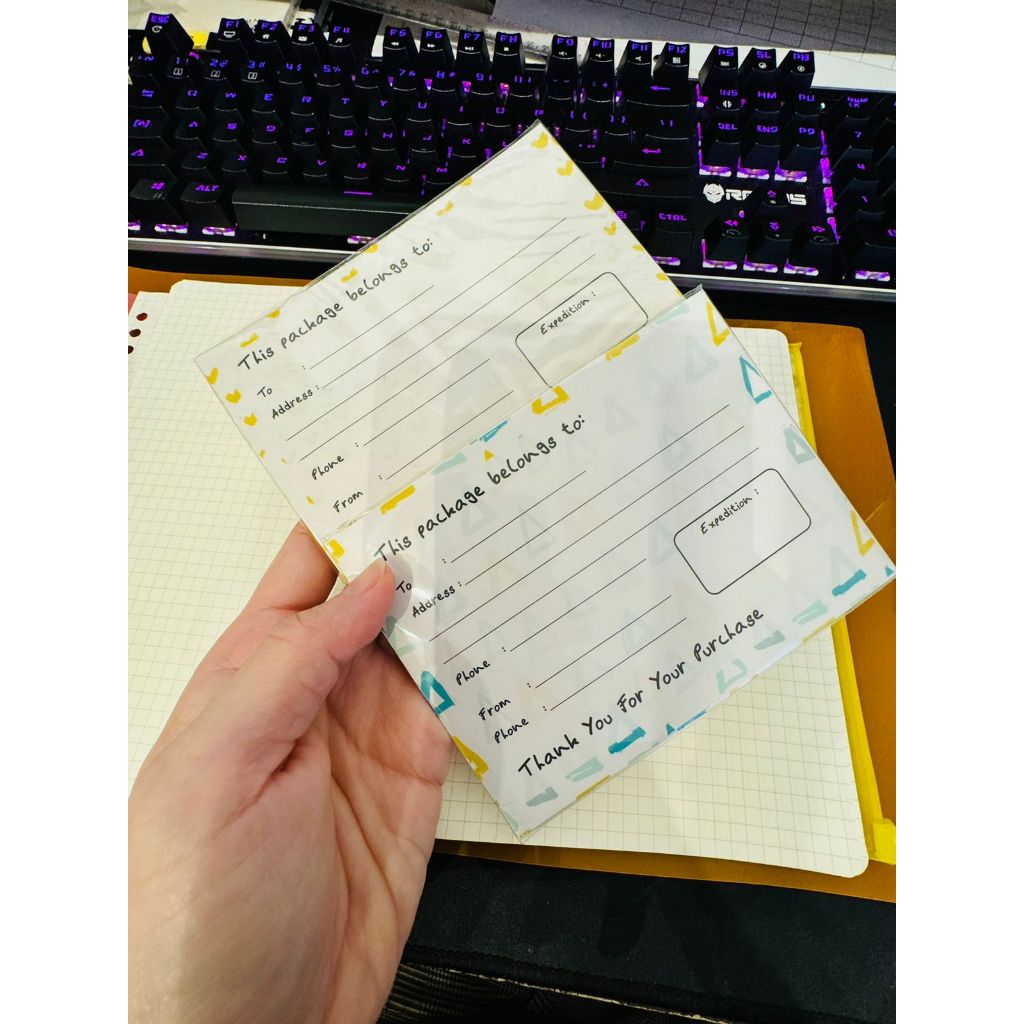 ESC F1 F2 F3 F4 F5 F6 F7 F8 F9 F10 F11 F12 PS SL PB
INS HM PU
DEL END P9
ALT
CTRL
This package belongs to:
To :
Address :
Phone :
From :
Expedition :
This package belongs to:
To :
Address :
Phone :
From :
Phone :
Expedition :
Thank You For Your Purchase